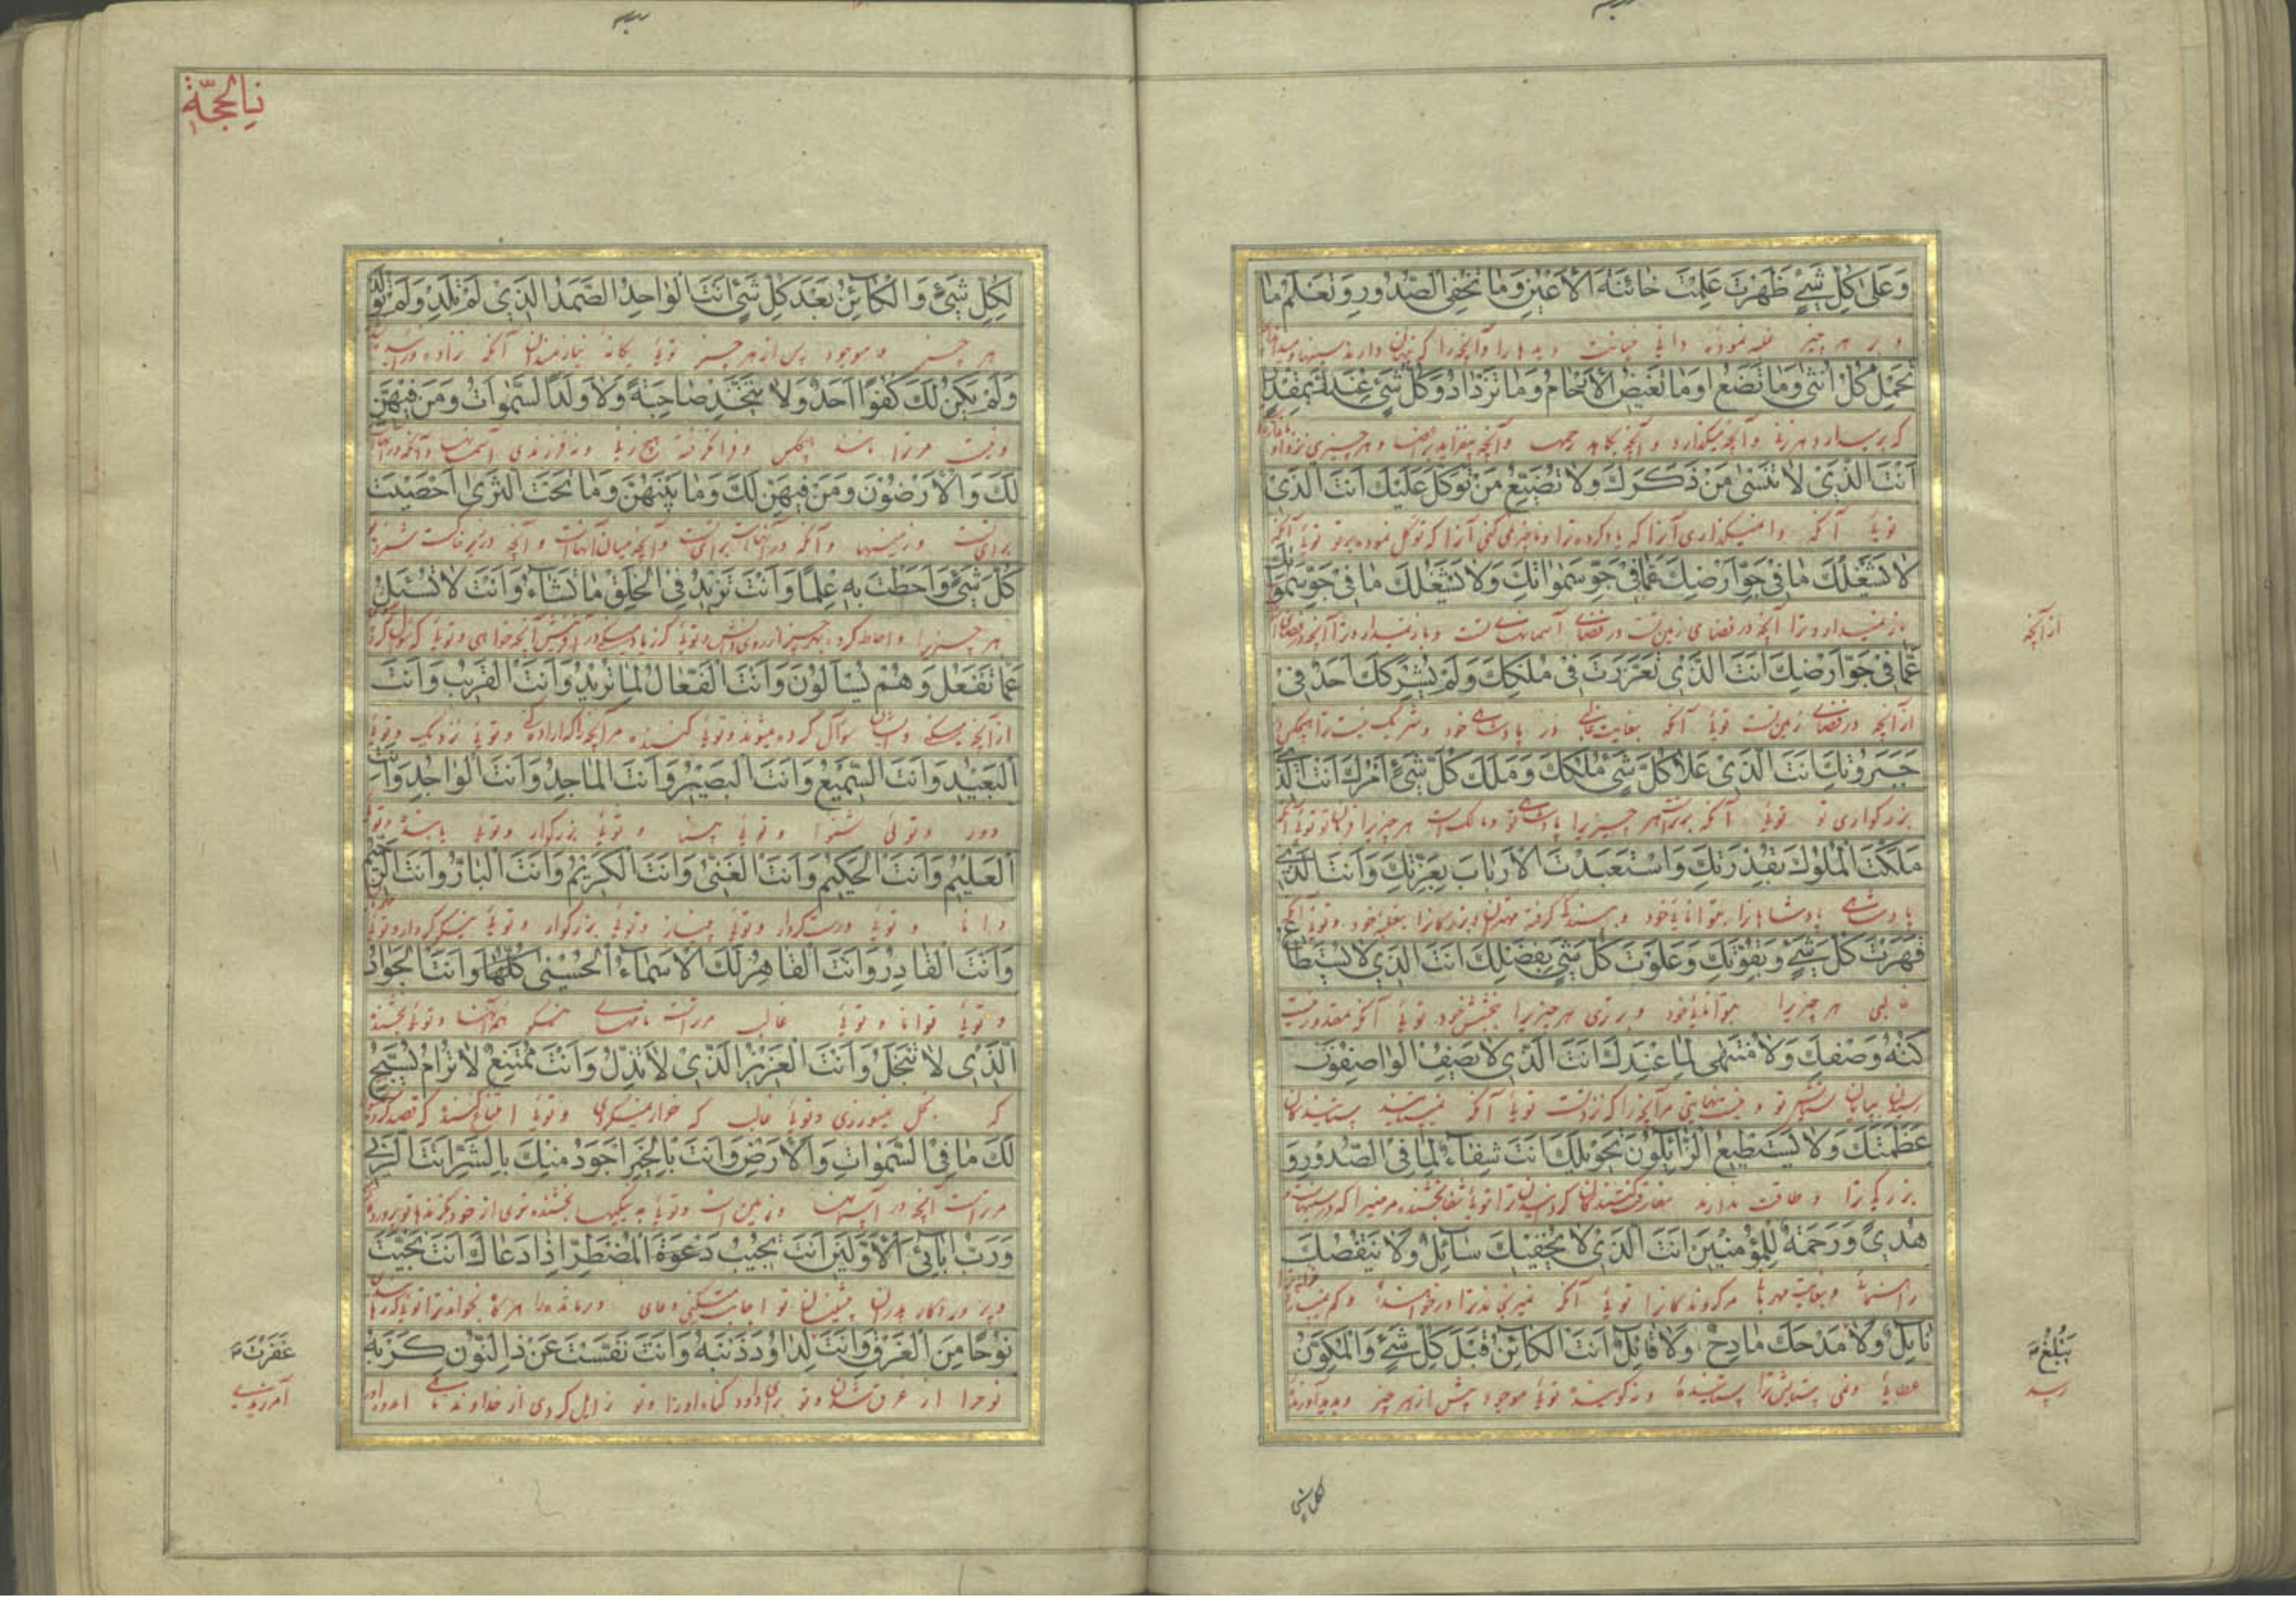 وَعَلىٰ كُلِّ شَيْءٍ ظَهَرْتَ عَلِمْتَ خٰائِنَةَ الْاَعْيُنِ وَمٰا تُخْفِى الصُّدُورِ وَتَعْلَمُ مٰا
و بر هر چیز غلبه نموده دانایی خیانت دیدها را و آنچه را که پنهان دارند سینها و میدانی
تَحْمِلُ كُلُّ اُنْثىٰ وَمٰا تَضَعُ وَمٰا تَغيضُ الْاَرْحٰامُ وَمٰا تَزْدٰادُ وَكُلُّ شَيْءٍ عِنْدَكَ بِمِقْدٰارٍ
که بر میدارد هر زنی و آنچه میگذارد و آنچه بکاهد رحمها و آنچه بیفزاید و هر چیزی نزد تو
اَنْتَ الَّذي لاٰ تَنْسىٰ مَنْ ذَكَرَكَ وَلاٰ تُضَيِّعُ مَنْ تَوَكَّلَ عَلَيْكَ اَنْتَ الَّذي
تویی آنکه وا نمیگذاری آنرا که یاد کرده ترا و ضایع نمی کنی آنرا که توکل نموده بر تو تویی آنکه
لاٰ يَشْغَلُكَ مٰا في جَوِّ اَرْضِكَ عَمّٰا في جَوِّ سَمٰوٰاتِكَ وَلاٰ يَشْغَلُكَ مٰا في جَوِّ سَمٰوٰاتِكَ
باز نمیدارد ترا آنچه در فضای زمین تست در فضای آسمانهای تست و باز نمیدارد ترا آنچه در فضای
از آنچه
عَمّٰا في جَوِّ اَرْضِكَ اَنْتَ الَّذي تَعَزَّزْتَ في مُلْكِكَ وَلَمْ يَشْرَكْكَ اَحَدٌ في
از آنچه در فضای زمین تست تویی آنکه بغایت غالبی در پادشاهی خود و شریک نیست ترا هیچکس
جَبَرُوتِكَ اَنْتَ الَّذي عَلاٰ كُلَّ شَيْءٍ مُلْكُكَ وَمَلَكَ كُلَّ شَيْءٍ اَمْرُكَ اَنْتَ الَّذي
بزرگواری تو تویی آنکه برتر است هر چیزیرا پادشاهی تو و مالک است هر چیزیرا فرمان تو تویی آنکه
مَلَكْتَ الْمُلُوكَ بِقُدْرَتِكَ وَاسْتَعْبَدْتَ الْاَرْبٰابَ بِعِزَّتِكَ وَاَنْتَ الَّذي
پادشاهی پادشاهانرا بتوانایی خود و ببندگی گرفته بغلبه خود و تویی آنکه
قَهَرْتَ كُلَّ شَيْءٍ وَبِقُوَّتِكَ وَعَلَوْتَ كُلَّ شَيْءٍ بِفَضْلِكَ اَنْتَ الَّذي لاٰ يُسْتَطٰاعُ
غالبی هر چیزیرا بتوانایی خود و برتری هر چیزیرا ببخشش خود تویی آنکه مقدور نیست
كُنْهُ وَصْفِكَ وَلاٰ مُنْتَهىٰ لِمٰا عِنْدَكَ اَنْتَ الَّذي لاٰ يَصِفُ الْوٰاصِفُونَ
تو و نیست نهایتی مر آنچه را که نزد تست تویی آنکه ستایندگان
عَظَمَتَكَ وَلاٰ يَسْتَطيعُ الزّٰائِلُونَ تَحْويلَكَ اَنْتَ شِفٰاءٌ لِمٰا فِي الصُّدُورِ وَ
بزرگی ترا و طاقت ندارند ترا تویی شفا بخشنده
هُدىً وَرَحْمَةٌ لِلْمُؤْمِنينَ اَنْتَ الَّذي لاٰ يُحْفيكَ سٰائِلٌ وَلاٰ يَنْقُصُكَ
راهنمای مر گروندگانرا تویی آنکه
نٰائِلٌ وَلاٰ مَدْحَكَ مٰادِحٌ وَلاٰ قٰائِلٌ اَنْتَ الْكٰائِنُ قَبْلَ كُلِّ شَيْءٍ وَالْمُكَوِّنُ
عطایی ستایش ترا ستاینده و نه گوینده تویی موجود پیش از هر چیز و پدید آورنده
يَبْلُغُ
رسد
كل شي
نيا لحجّة
لِكُلِّ شَيْءٍ وَالْكٰائِنُ بَعْدَ كُلِّ شَيْءٍ اَنْتَ الْوٰاحِدُ الصَّمَدُ الَّذي لَمْ تَلِدْ وَلَمْ تُولَدْ
هر چیز و موجود پس از هر چیز تویی یگانه نیازمندان آنکه نزاده
وَلَمْ يَكُنْ لَكَ كُفُوًا اَحَدٌ وَلاٰ يَتَّخِذْ صٰاحِبَةً وَلاٰ وَلَدًا السَّمٰوٰاتُ وَمَنْ فيهِنَّ
و نیست مر ترا مانند هیچکس و فرا نگرفته هیچ زنی و نه فرزندی آسمانها و آنکه در آنهاست
لَكَ وَالْاَرَضُونَ وَمَنْ فيهِنَّ لَكَ وَمٰا بَيْنَهُنَّ وَمٰا تَحْتَ الثَّرىٰ اَحْصَيْتَ
برای تست و زمینها و آنکه در آنهاست برای تست و آنچه میان آنهاست و آنچه در زیر خاکست
كُلَّ شَيْءٍ وَاَحَطْتَ بِهِ عِلْمًا وَاَنْتَ تَزيدُ فِي الْخَلْقِ مٰا تَشٰاءُ وَاَنْتَ لاٰ تُسْئَلُ
هر چیزیرا و احاطه کرده بهر چیز از روی دانش و تویی که زیاد میکنی در آفرینش آنچه خواهی و تویی که
عَمّٰا تَفْعَلُ وَهُمْ يُسْأَلُونَ وَاَنْتَ الْفَعّٰالُ لِمٰا تُريدُ وَاَنْتَ الْقَريبُ وَاَنْتَ
از آنچه میکنی و ایشان سؤال کرده میشوند و تویی کننده مر آنچه را که اراده کنی و تویی نزدیک و تویی
الْبَعيدُ وَاَنْتَ السَّميعُ وَاَنْتَ الْبَصيرُ وَاَنْتَ الْمٰاجِدُ وَاَنْتَ الْوٰاحِدُ وَاَنْتَ
دور و توئی شنوا و تویی بینا و تویی بزرگوار و تویی و تویی
الْعَليمُ وَاَنْتَ الْحَكيمُ وَاَنْتَ الْغَنِيُّ وَاَنْتَ الْكَريمُ وَاَنْتَ الْبٰارُّ وَاَنْتَ الرَّحيمُ
دانا و تویی درست کردار و تویی بی نیاز و تویی بزرگوار و تویی نیکو کردار و تویی
وَاَنْتَ الْقٰادِرُ وَاَنْتَ الْقٰاهِرُ لَكَ الْاَسْمٰاءُ الْحُسْنىٰ كُلُّهٰا وَاَنْتَ الْجَوٰادُ
و تویی توانا و تویی غالب مر تراست نامهای نیکو همه آنها و تویی بخشنده
الَّذي لاٰ تَبْخَلُ وَاَنْتَ الْعَزيزُ الَّذي لاٰ تَذِلُّ وَاَنْتَ مُمْتَنِعٌ لاٰ تُرٰامُ يُسَبِّحُ
که بخل نمیورزی و تویی غالب که خوار نمیگردی و تویی
لَكَ مٰا فِي السَّمٰوٰاتِ وَالْاَرْضِ وَاَنْتَ بِالْخَيْرِ اَجْوَدُ مِنْكَ بِالشَّرِّ اَنْتَ الرَّبّي
مر تراست آنچه در آسمانها و زمین است و تویی به نیکیها بخشنده تری از خود
وَرَبُّ اٰبٰائِيَ الْاَوَّلينَ اَنْتَ تُجيبُ دَعْوَةَ الْمُضْطَرِّ اِذٰا دَعٰاكَ اَنْتَ نَجَّيْتَ
و پروردگار پدران پیشینیان تو اجابت میکنی دعای درمانده را هر گاه بخواند ترا تویی که
نُوحًا مِنَ الْغَرَقِ وَاَنْتَ لِدٰاوُدَ ذَنْبَهُ وَاَنْتَ نَفَّسْتَ عَنْ ذِا النُّونِ كَرْبَهُ
نوحرا از غرق شدن و تو برای داود گناه او را و تو زایل کردی از خداوند ماهی اندوه او را
غَفَرْتَ
آمرزیدی